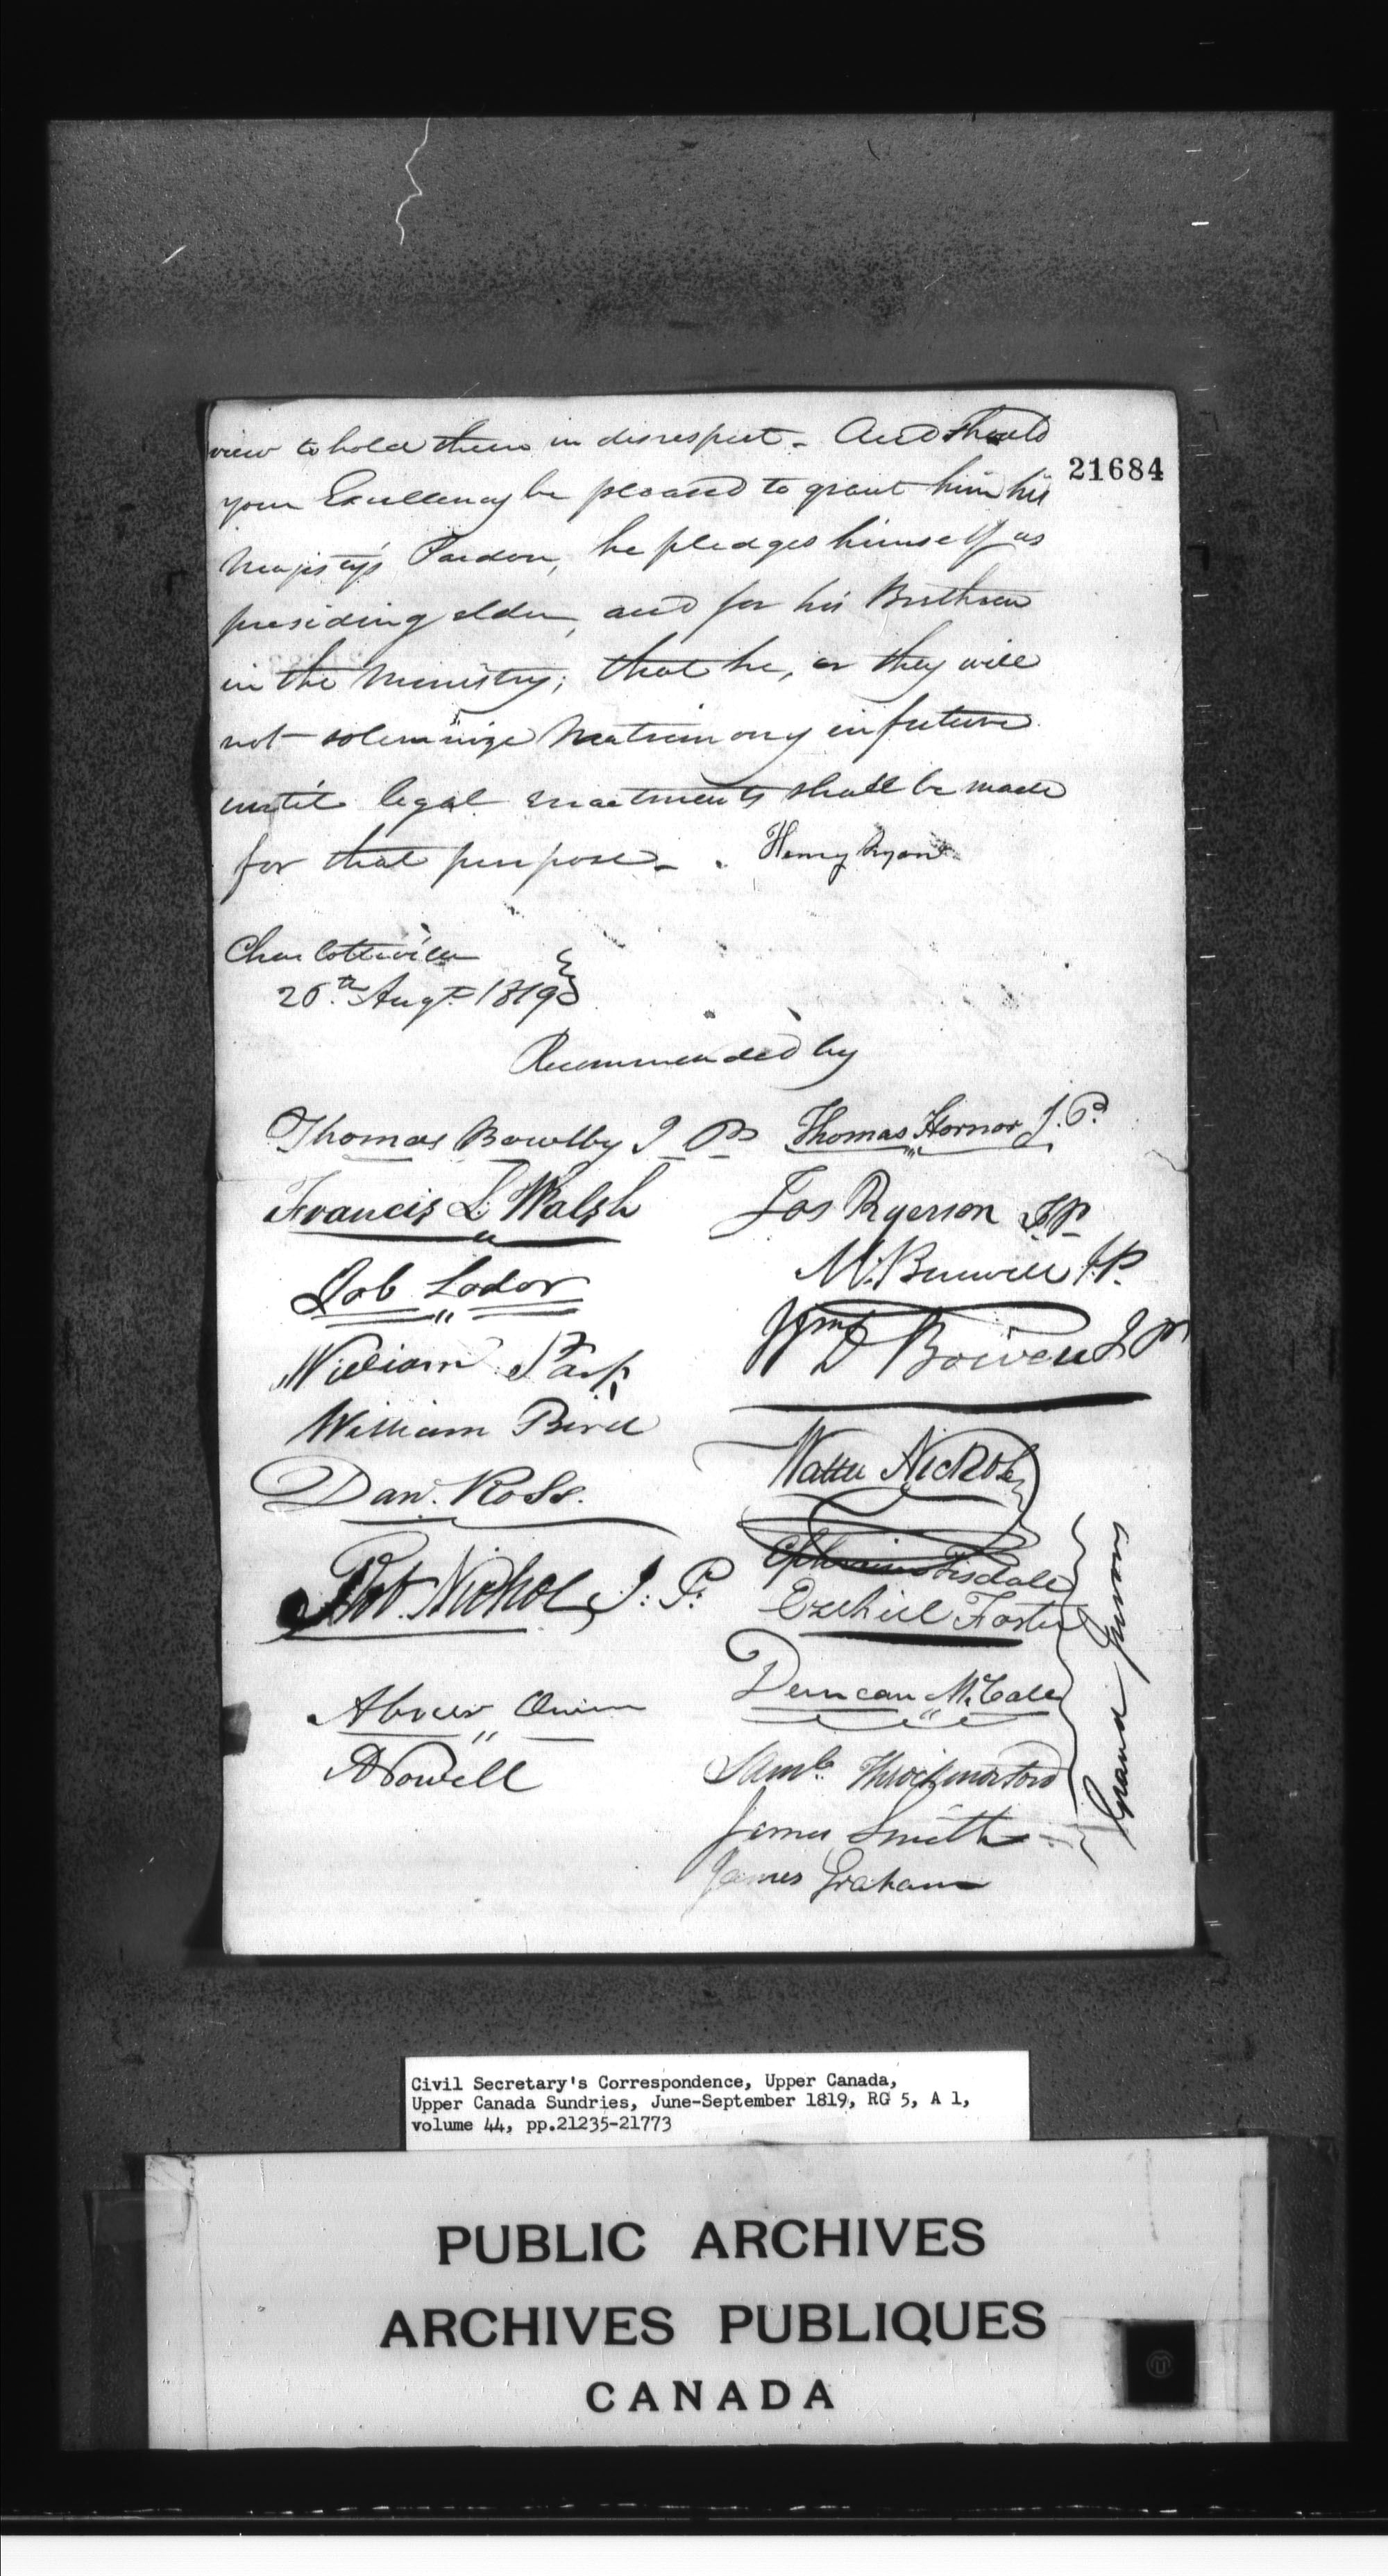 view to hold them in disrespect - And should
21684
your Excellency be pleased to grant him his
Majesty's Pardon, he pledges himself as
presiding elder, and for his Brethren
in the Ministry; that he, or they will
not solemnize Matrimony in future
until legal enactments shall be made
for that purpose - Henry Ryan
Charlotteville
26th Augt 1819
Recommended by
Thomas Bowlby J P
Thomas Hornor J.P.
Francis L Walsh
Jos Ryerson JP
Job Lodor
M. Burwell J.P.
William Park
Wm D Bowen J P
William Bird
Walter Nichol
Dan. Ross.
Ephraim Tisdale
Rob. Nichol J. P.
Ezekiel Foster
Duncan McCall
Abner Owen
Saml. Throckmorton
A Powell
James Smith
James Graham
Grand Jurors
Civil Secretary's Correspondence, Upper Canada,
Upper Canada Sundries, June-September 1819, RG 5, A 1,
volume 44, pp.21235-21773
PUBLIC ARCHIVES
ARCHIVES PUBLIQUES
CANADA